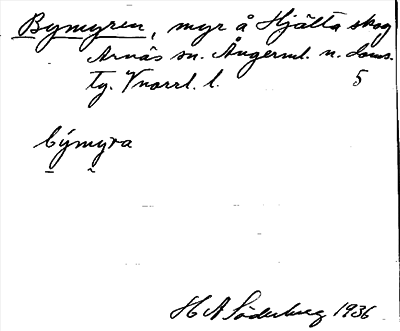 Bymyren, myr å Hjälta skog
Arnäs sn. Ångerml. n. doms.
tg. Vnorrl. l. 5
býmyra
H A Söderberg 1936